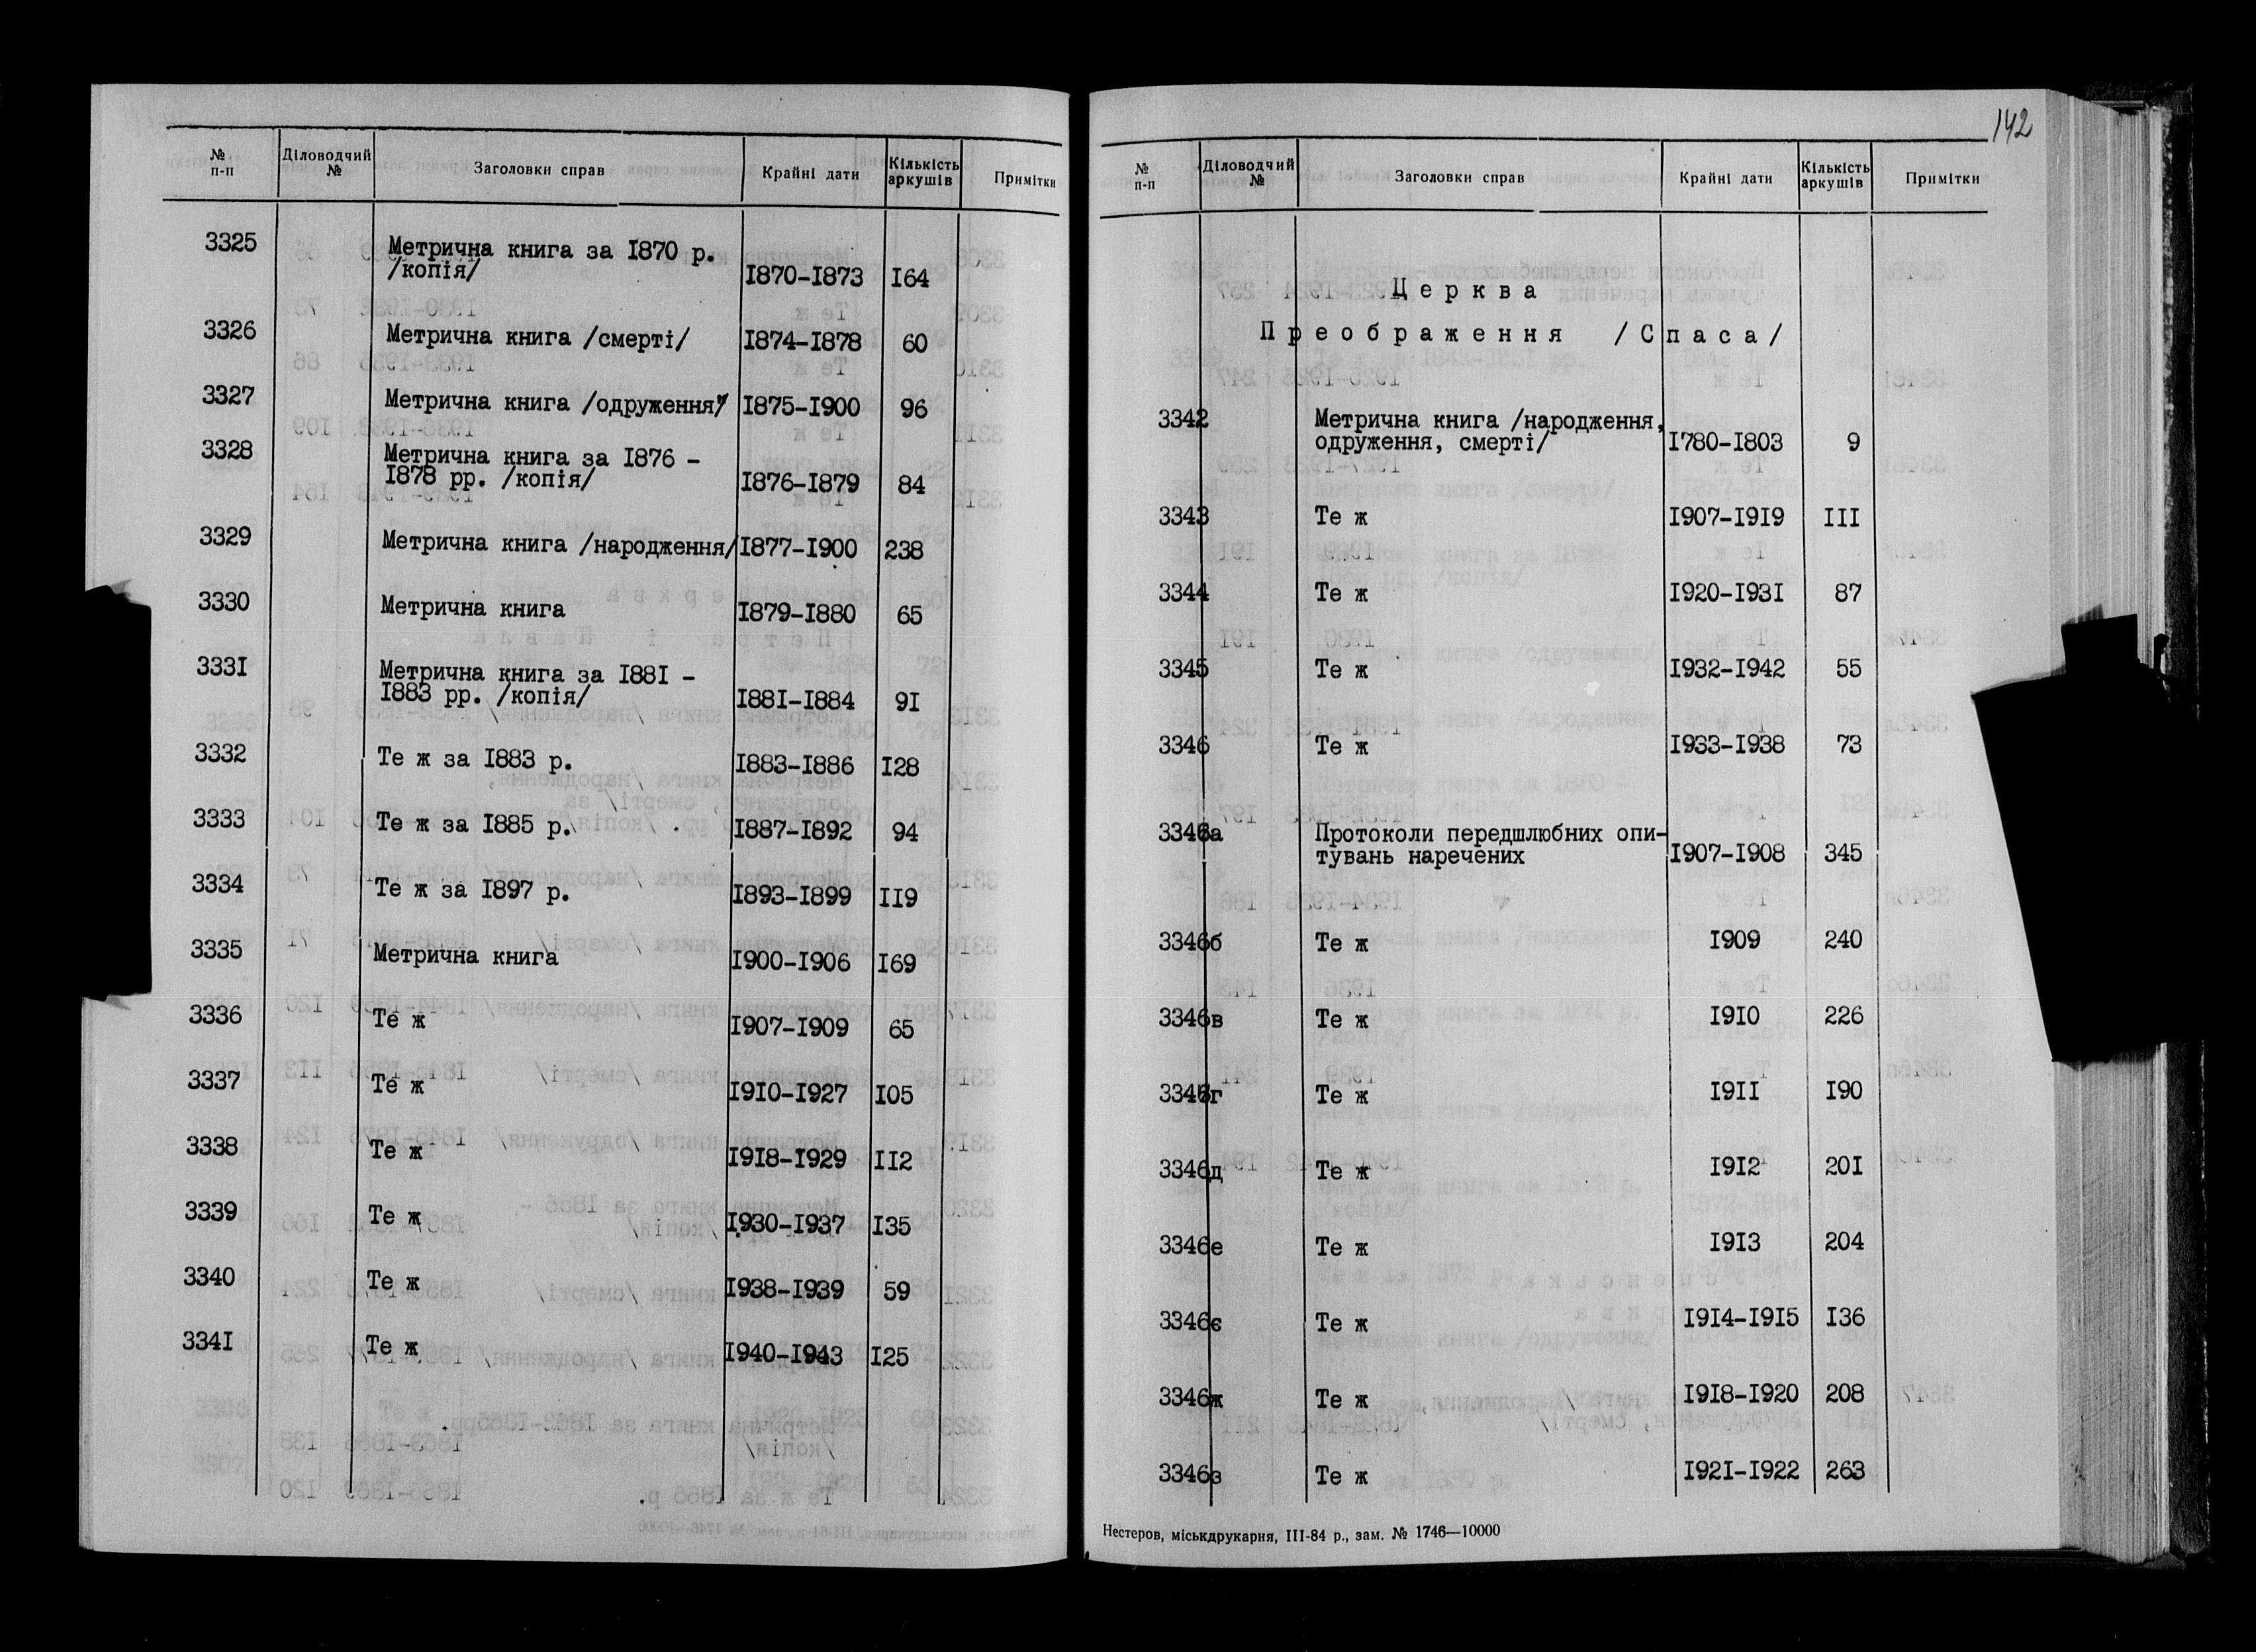 № п-п Діловодчий № Заголовки справ Крайні дати Кількість аркушів Примітки
3325 Метрична книга за I870 р.
/копія/ I870-I873 I64
3326 Метрична книга /смерті/ I874-I878 60
3327 Метрична книга /одруження/ I875-I900 96
3328 Метрична книга за I876 -
I878 рр. /копія/ I876-I879 84
3329 Метрична книга /народження/ I877-I900 238
3330 Метрична книга I879-I880 65
333I Метрична книга за I88I -
I883 рр. /копія/ I88I-I884 9I
3332 Те ж за I883 р. I883-I886 I28
3333 Те ж за I885 р. I887-I892 94
3334 Те ж за I897 р. I893-I899 II9
3335 Метрична книга I900-I906 I69
3336 Те ж I907-I909 65
3337 Те ж I9I0-I927 I05
3338 Те ж I9I8-I929 II2
3339 Те ж I930-I937 I35
3340 Те ж I938-I939 59
334I Те ж I940-I943 I25
142
№ п-п Діловодчий № Заголовки справ Крайні дати Кількість аркушів Примітки
Церква
Преображення /Спаса/
3342 Метрична книга /народження,
одруження, смерті/ I780-I803 9
3343 Те ж I907-I9I9 III
3344 Те ж I920-I93I 87
3345 Те ж I932-I942 55
3346 Те ж I933-I938 73
3346а Протоколи передшлюбних опи-
тувань наречених I907-I908 345
3346б Те ж I909 240
3346в Те ж I9I0 226
3346г Те ж I9II I90
3346д Те ж I9I2 20I
3346е Те ж I9I3 204
3346є Те ж I9I4-I9I5 I36
3346ж Те ж I9I8-I920 208
3346з Те ж I92I-I922 263
Нестеров, міськдрукарня, III-84 р., зам. № 1746—10000